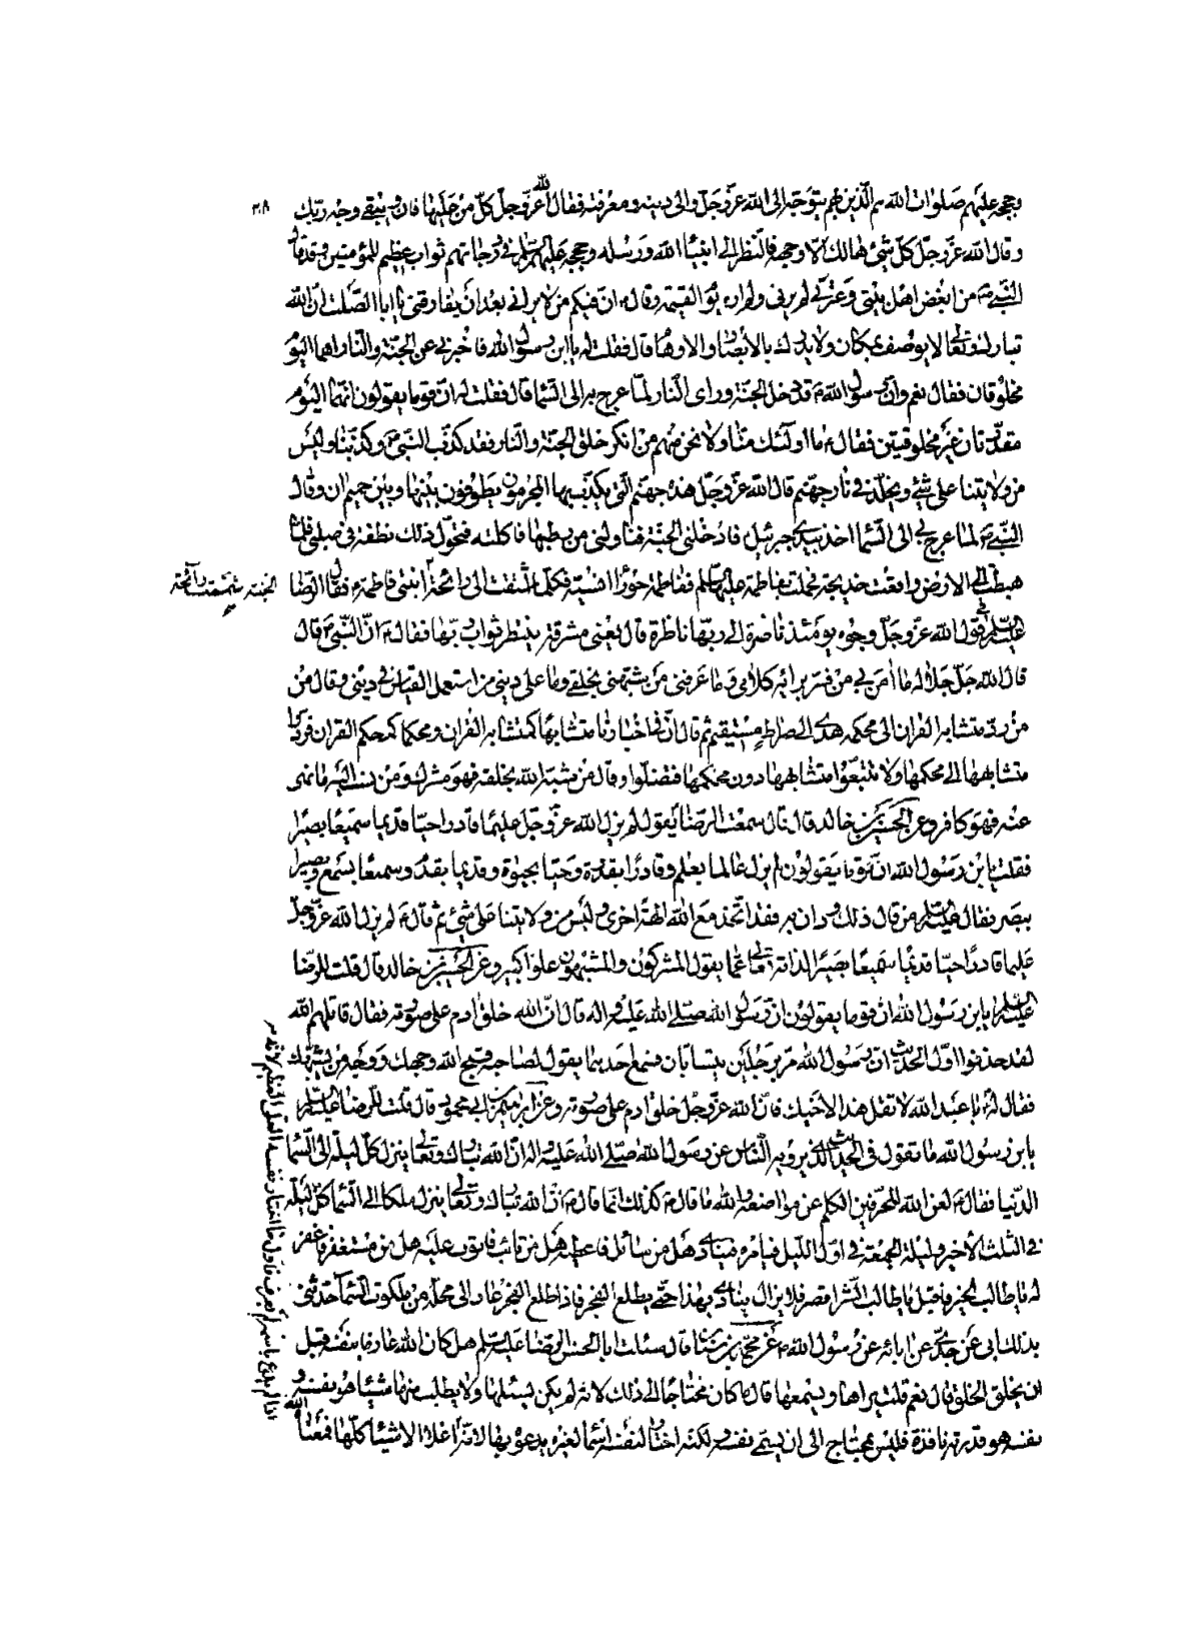 وحججه عليهم صلوات الله هم الذين بهم يتوجه الى الله عز وجل والى دينه ومعرفته فقال الله عز وجل كل من عليها فان ويبقى وجه ربك
٣٠٨
وقال الله عز وجل كل شئ هالك الا وجهه فالنظر الى انبياء الله ورسله وحججه عليهم السلم في درجاتهم ثواب عظيم للمؤمنين وقد قال
النبي ص من ابغض اهل بيتي وعترتي لم يرني ولم اره يوم القيمة وقال ع ان فيكم من لا يراني بعد ان يفارقني يا ابا الصلت ان الله
تبارك وتعالى لا يوصف بمكان ولا يدرك بالابصار والاوهام قال فقلت له يا ابن رسول الله فاخبرني عن الجنة والنار اهما اليوم
مخلوقتان فقال نعم وان رسول الله ص قد دخل الجنة وراى النار لما عرج به الى السماء قال فقلت له ان قوما يقولون انهما اليوم
مقدرتان غير مخلوقتين فقال ع ما اولئك منا ولا نحن منهم من انكر خلق الجنة والنار فقد كذب النبي ص وكذبنا وليس
من ولايتنا على شئ ويخلد في نار جهنم قال الله عز وجل هذه جهنم التي يكذب بها المجرمون يطوفون بينها وبين حميم ان وقال
النبي ص لما عرج بي الى السماء اخذ بيدي جبرئيل فادخلني الجنة فناولني من رطبها فاكلته فتحول ذلك نطفة في صلبي فلما
هبطت الى الارض واقعت خديجة فحملت بفاطمة عليها السلم ففاطمة حوراء انسية فكلما اشتقت الى رائحة ابنتي فاطمة ع فقال الرضا
الجنة شممت رائحة
عليه السلم في قول الله عز وجل وجوه يومئذ ناضرة الى ربها ناظرة قال يعني مشرقة ينتظر ثواب ربها فقال ع ان النبي ص قال
قال الله جل جلاله ما امن بي من فسر برايه كلامي وما عرفني من شبهني بخلقي وما على ديني من استعمل القياس في ديني وقال من
من رد متشابه القران الى محكمه هدى الى صراط مستقيم ثم قال ان في اخبارنا متشابها كمتشابه القران ومحكما كمحكم القران فردوا
متشابهها الى محكمها ولا تتبعوا متشابهها دون محكمها فتضلوا وقال من شبه الله بخلقه فهو مشرك ومن نسب اليه ما نهى
عنه فهو كافر وعن الحسين بن خالد قال قال سمعت الرضا ع يقول لم يزل الله عز وجل عليما قادرا حيا قديما سميعا بصيرا
فقلت يا بن رسول الله ان قوما يقولون لم يزل عالما بعلم وقادرا بقدرة وحيا بحيوة وقديما بقدم وسميعا بسمع وبصيرا
ببصر فقال عليه السلم من قال ذلك ودان به فقد اتخذ مع الله الهة اخرى وليس من ولايتنا على شئ ثم قال ع لم يزل الله عز وجل
عليما قادرا حيا قديما سميعا بصيرا لذاته تعالى عما يقول المشركون والمشبهون علوا كبيرا وعن الحسين بن خالد قال قلت للرضا
عليه السلم يا بن رسول الله ان قوما يقولون ان رسول الله صلى الله عليه واله قال ان الله خلق ادم على صورته فقال قاتلهم الله
لقد حذفوا اول الحديث ان رسول الله مر برجلين يتسابان فسمع احدهما يقول لصاحبه قبح الله وجهك ووجه من يشبهك
فقال له يا عبد الله لا تقل هذا لاخيك فان الله عز وجل خلق ادم على صورته وعن ابراهيم بن ابي محمود قال قلت للرضا عليه السلم
يا بن رسول الله ما تقول في الحديث الذي يرويه الناس عن رسول الله صلى الله عليه واله ان الله تبارك وتعالى ينزل كل ليلة الى السماء
الدنيا فقال ع لعن الله المحرفين الكلم عن مواضعه والله ما قال ع كذلك انما قال ص ان الله تبارك وتعالى ينزل ملكا الى السماء كل ليلة
في الثلث الاخير وليلة الجمعة في اول الليل فيامره فينادي هل من سائل فاعطيه هل من تائب فاتوب عليه هل من مستغفر فاغفر
له يا طالب الخير فاقبل يا طالب الشر اقصر فلا يزال ينادي بهذا حتى يطلع الفجر فاذا طلع الفجر عاد الى محله من ملكوت السماء حدثني
بذلك ابي عن جدي عن ابائه عن رسول الله ص عن محمد بن سنان قال سئلت ابا الحسن الرضا عليه السلم هل كان الله عارفا بنفسه قبل
ان يخلق الخلق قال نعم قلت يراها ويسمعها قال ما كان محتاجا الى ذلك لانه لم يكن يسئلها ولا يطلب منها شيئا هو نفسه و
نفسه هو قدرته نافذة فليس يحتاج الى ان يسمى نفسه ولكنه اختار لنفسه اسماء لغيره يدعوه بها لانه اعلا الاشياء كلها فمعناه الله
اذا لم يدع باسمه لم يعرف فاول ما اختار لنفسه العلي العظيم لانه